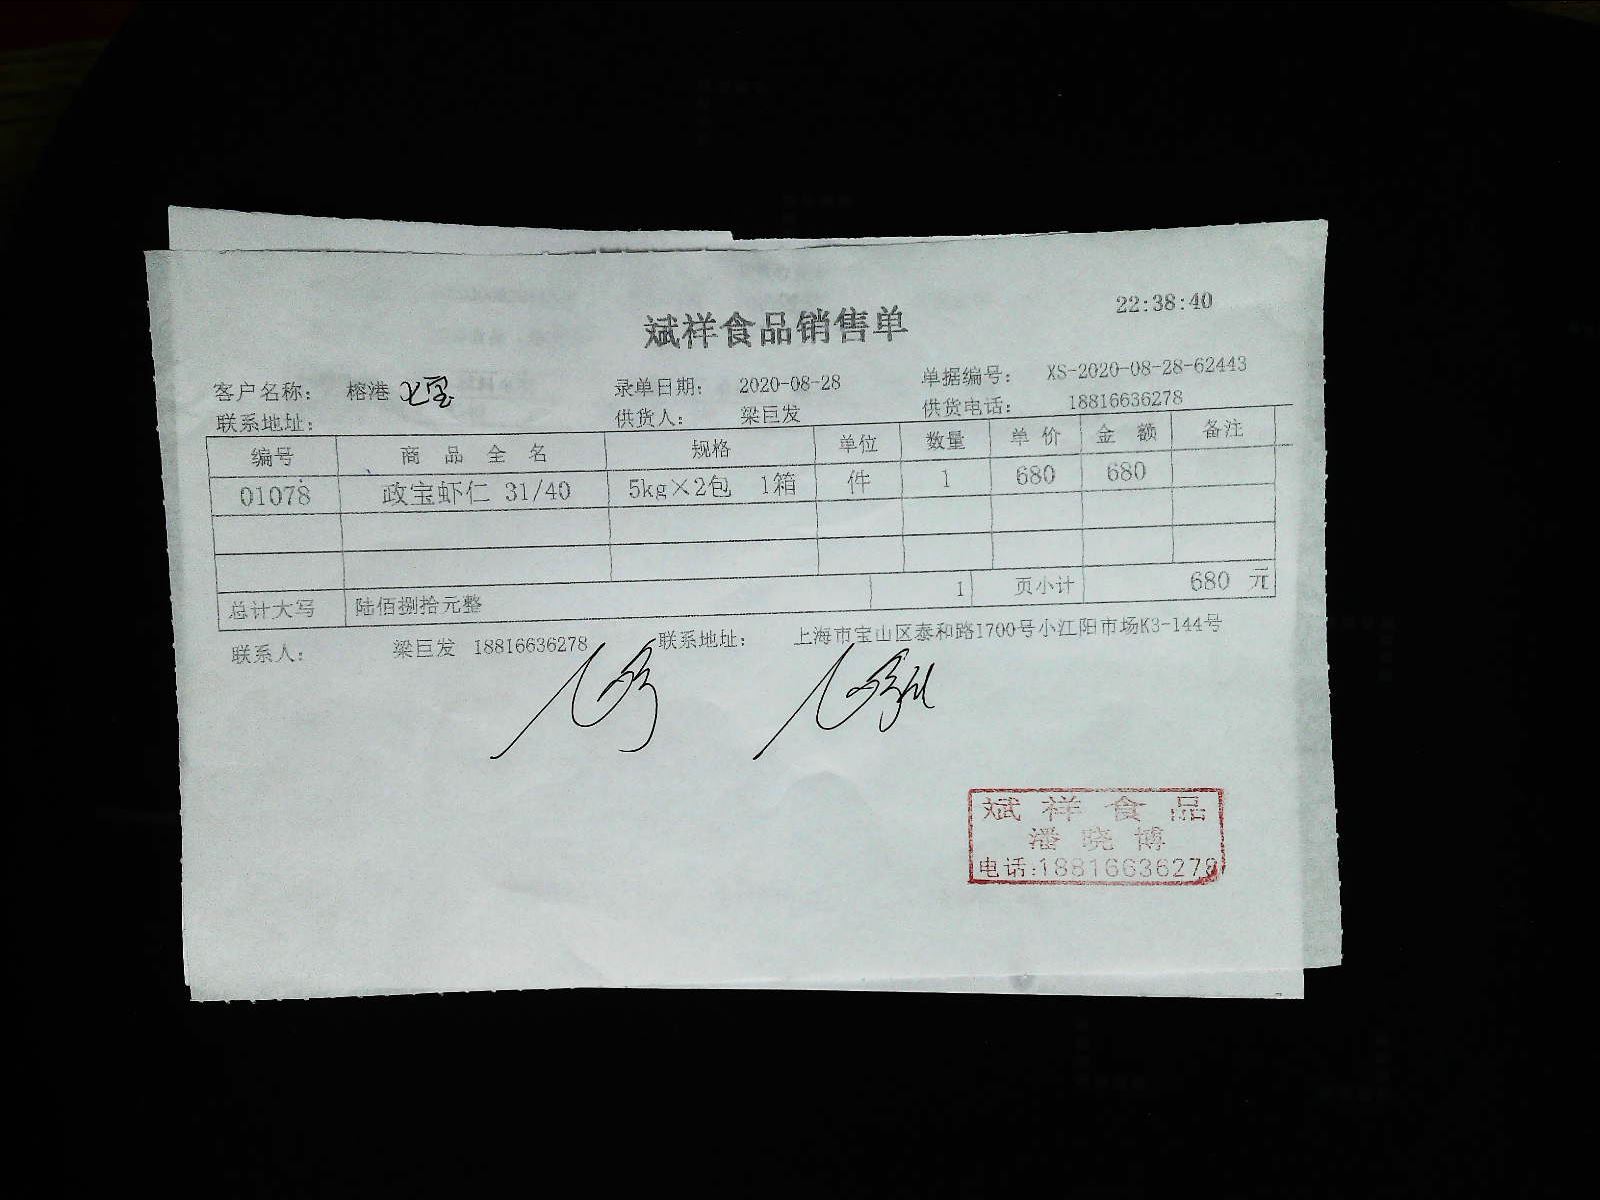 22:38:40
斌祥食品销售单
客户名称： 榕港 七宝 录单日期： 2020-08-28 单据编号： XS-2020-08-28-62443
联系地址： 供货人： 梁巨发 供货电话： 18816636278
编号 商品全名 规格 单位 数量 单价 金额 备注
01078 政宝虾仁 31/40 5kg×2包 1箱 件 1 680 680
总计大写 陆佰捌拾元整 1 页小计 680 元
联系人： 梁巨发 18816636278 联系地址： 上海市宝山区泰和路1700号小江阳市场K3-144号
斌祥食品
潘晓博
电话:18816636278